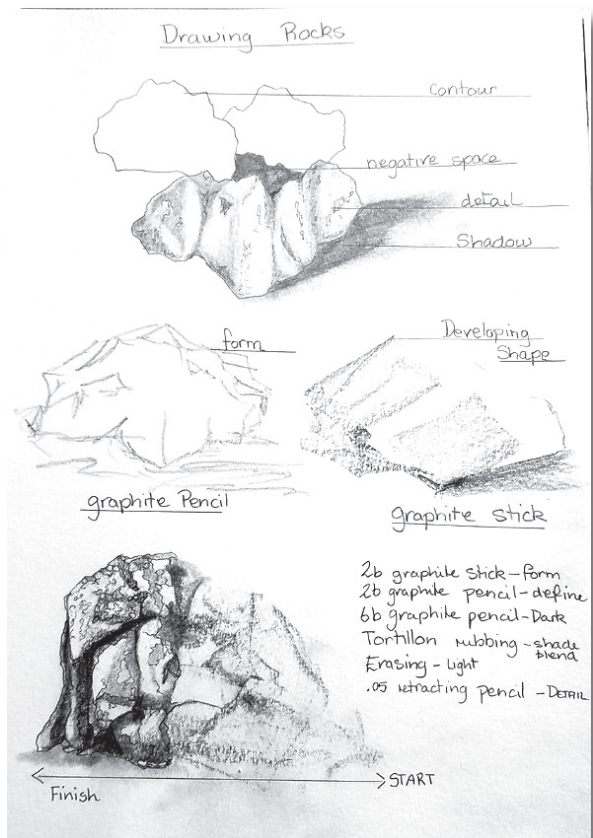 Drawing Rocks
Contour
negative space
detail
Shadow
form
Developing
Shape
graphite Pencil
graphite Stick
2b graphite stick - form
2b graphite pencil - define
6b graphite pencil - Dark
Tortillon rubbing - shade
blend
Erasing - Light
.05 retracting pencil - DETAIL
START
Finish